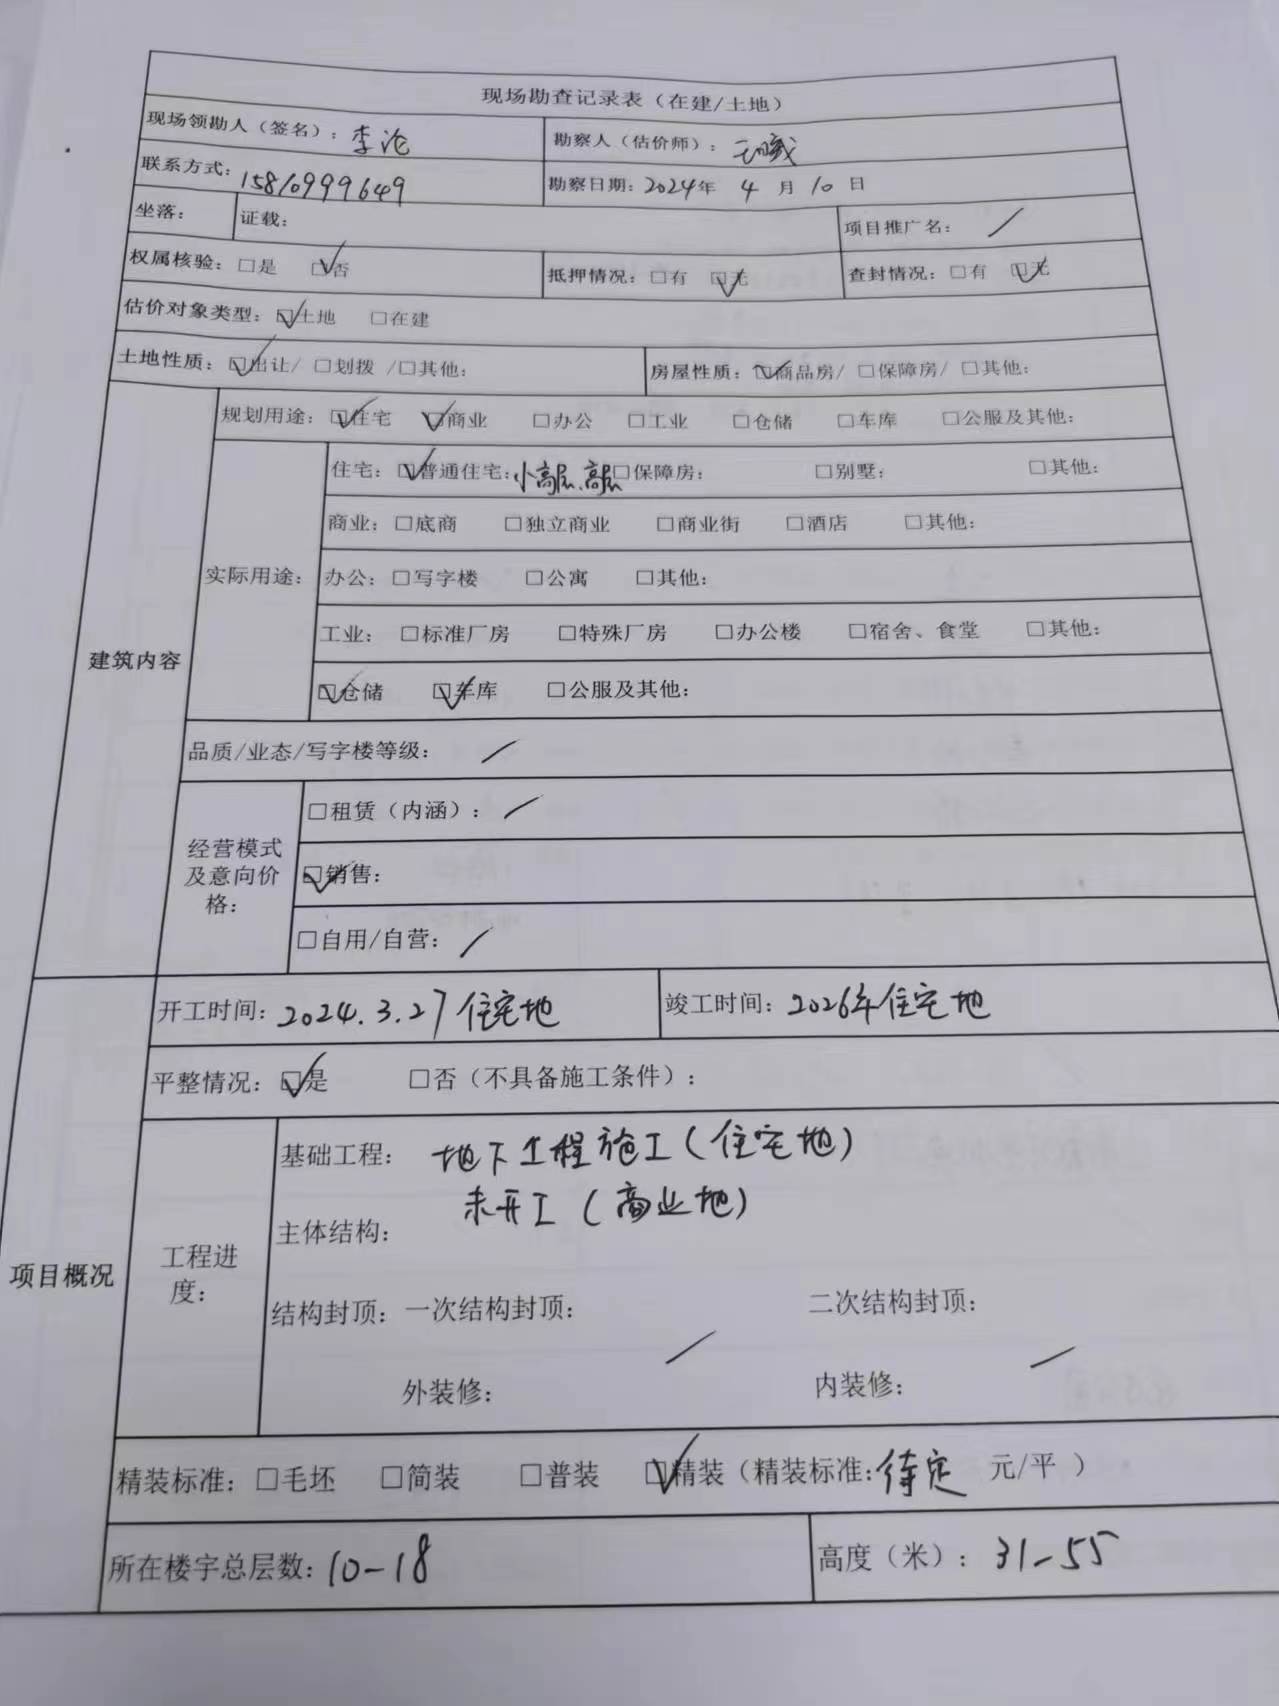 现场勘查记录表（在建/土地）
现场领勘人（签名）：李沦 勘察人（估价师）：
联系方式：15810999649 勘察日期：2024年 4 月 10 日
坐落： 证载： 项目推广名： /
权属核验：□是 ☑否 抵押情况：□有 ☑无 查封情况：□有 ☑无
估价对象类型：☑土地 □在建
土地性质：☑出让/ □划拨 /□其他： 房屋性质：☑商品房/ □保障房/ □其他：
建筑内容
规划用途：☑住宅 ☑商业 □办公 □工业 □仓储 □车库 □公服及其他：
实际用途：
住宅：☑普通住宅：小高层、高层 □保障房： □别墅： □其他：
商业：□底商 □独立商业 □商业街 □酒店 □其他：
办公：□写字楼 □公寓 □其他：
工业：□标准厂房 □特殊厂房 □办公楼 □宿舍、食堂 □其他：
☑仓储 ☑车库 □公服及其他：
品质/业态/写字楼等级： /
经营模式
及意向价
格：
□租赁（内涵）： /
☑销售：
□自用/自营： /
项目概况
开工时间：2024.3.27住宅地 竣工时间：2026年住宅地
平整情况：☑是 □否（不具备施工条件）：
工程进
度：
基础工程： 地下工程施工（住宅地）
未开工（商业地）
主体结构：
结构封顶：一次结构封顶： 二次结构封顶：
/ /
外装修： 内装修：
精装标准：□毛坯 □简装 □普装 ☑精装（精装标准：待定 元/平 ）
所在楼宇总层数：10-18 高度（米）：31-55